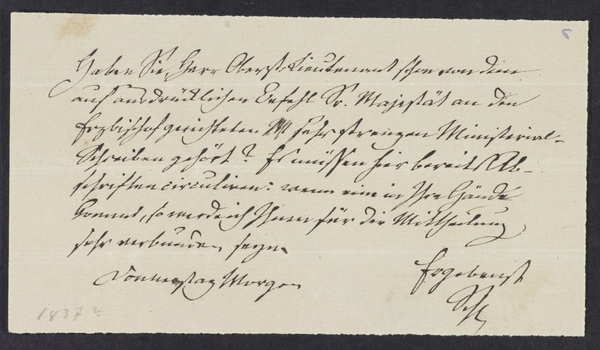 Haben Sie, Herr Oberst-Lieutenant schon von dem
auf ausdrücklichen Befehl Sr. Majestät an den
Erzbischof gerichteten sehr strengen Ministerial-
Schreiben gehört? Es müssen hier bereits Ab-
schriften circuliren: wenn eine in Ihre Hände
kommt, so werde ich Ihnen für die Mittheilung
sehr verbunden seyn.
Ergebenst
Donnerstag Morgen
Schl
1837